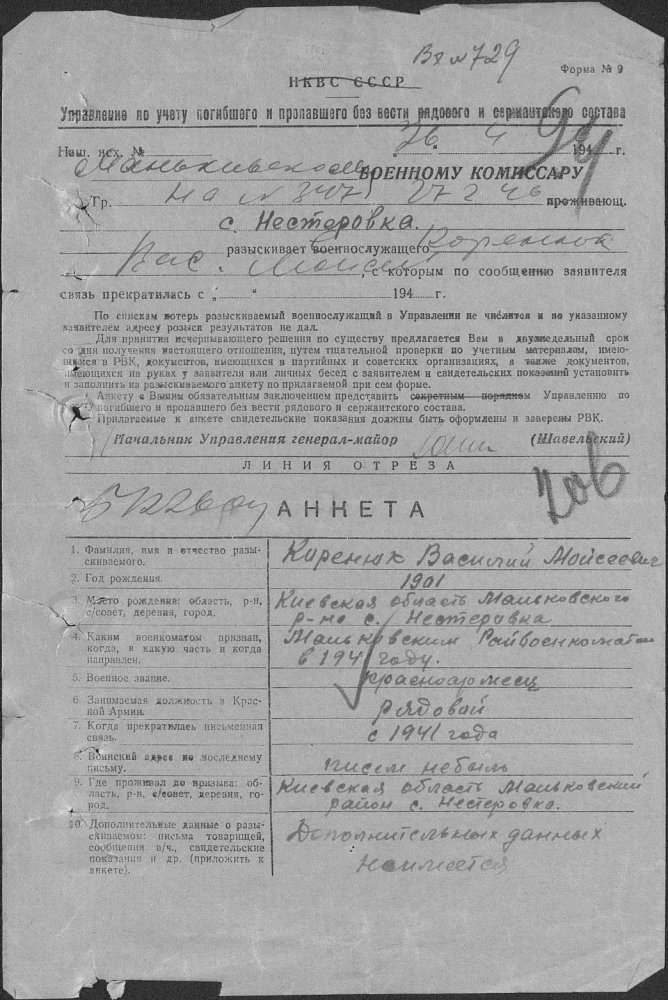 Вх № 729
Форма № 9
НКВС СССР
Управление по учету погибшего и пропавшего без вести рядового и сержантского состава
Наш. исх. № „26“ 4 194 г.
94
Маньковскому ВОЕННОМУ КОМИССАРУ
Гр. На № 347 27 2 46 проживающ.
с. Нестеровка.
разыскивает военнослужащего Коренюк
Вас. Моисей , с которым по сообщению заявителя
связь прекратилась с „ “ 194 г.
По спискам потерь разыскиваемый военнослужащий в Управлении не числится и по указанному
заявителем адресу розыск результатов не дал.
Для принятия исчерпывающего решения по существу предлагается Вам в двухнедельный срок
со дня получения настоящего отношения, путем тщательной проверки по учетным материалам, имею-
щимся в РВК, документов, имеющихся в партийных и советских организациях, а также документов,
имеющихся на руках у заявителя или личных бесед с заявителем и свидетельских показаний установить
и заполнить на разыскиваемого анкету по прилагаемой при сем форме.
Анкету с Вашим обязательным заключением представить секретным порядком Управлению по
учету погибшего и пропавшего без вести рядового и сержантского состава.
Прилагаемые к анкете свидетельские показания должны быть оформлены и заверены РВК.
Начальник Управления генерал-майор (Шавельский)
ЛИНИЯ ОТРЕЗА
АНКЕТА
206
1. Фамилия, имя и отчество разы-
скиваемого.
Коренюк Василий Моисеевич
2. Год рождения.
1901
3. Место рождения: область, р-н,
с/совет, деревня, город.
Киевская область Маньковского
р-на с. Нестеровка
4. Каким военкоматом призван,
когда, в какую часть и когда
направлен.
Маньковским Райвоенкоматом
в 1941 году.
5. Военное звание.
Красноармеец
6. Занимаемая должность в Крас-
ной Армии.
рядовой
7. Когда прекратилась письменная
связь.
с 1941 года
8. Воинский адрес по последнему
письму.
писем небыло
9. Где проживал до призыва: об-
ласть, р-н, с/совет, деревня, го-
род.
Киевская область Маньковский
район с. Нестеровка.
10. Дополнительные данные о разы-
скиваемом: письма товарищей,
сообщения в/ч., свидетельские
показания и др. (приложить к
анкете).
Дополнительных данных
неимеется